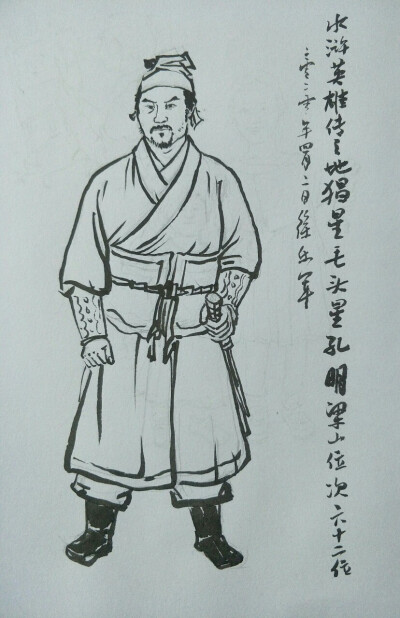 水浒英雄传之地猖星毛头星孔明梁山位次六十二位
二零二零年四月二日徐乐军